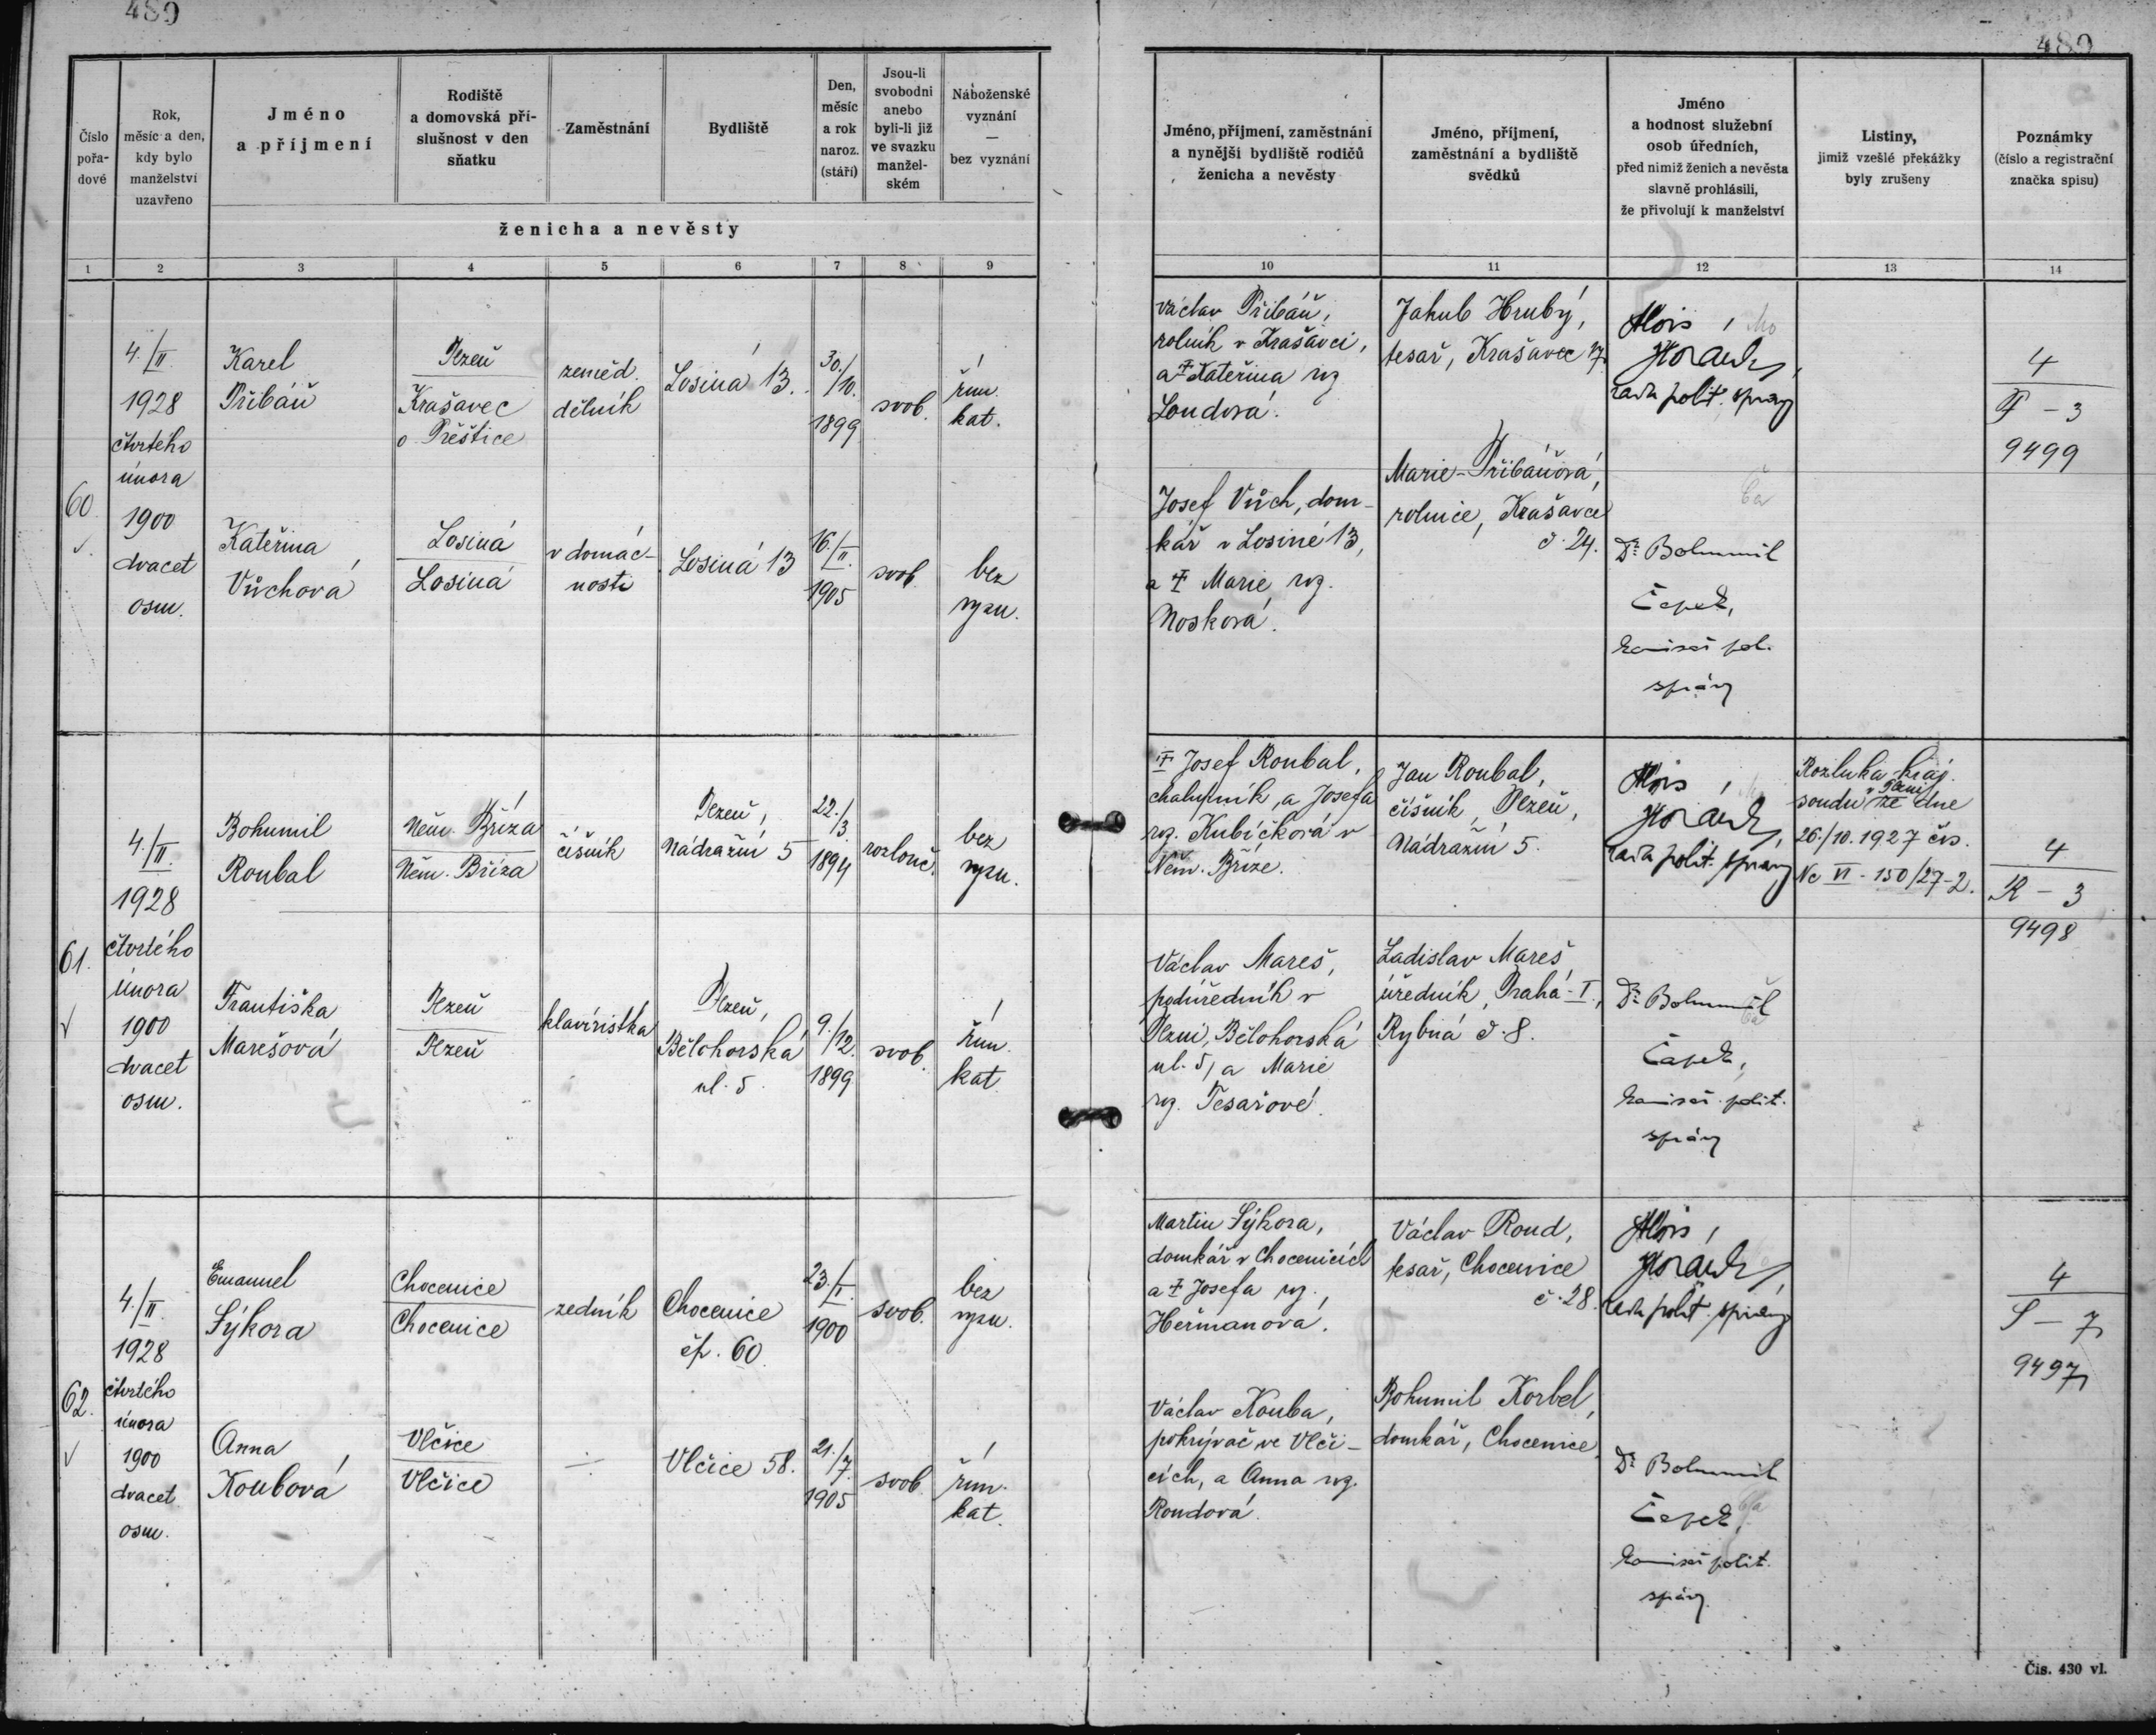 480
480
Číslo pořadové
Rok, měsíc a den, kdy bylo manželství uzavřeno
Jméno a příjmení
Rodiště a domovská příslušnost v den sňatku
Zaměstnání
Bydliště
Den, měsíc a rok naroz. (stáří)
Jsou-li svobodni anebo byli-li již ve svazku manželském
Náboženské vyznání — bez vyznání
ženicha a nevěsty
Jméno, příjmení, zaměstnání a nynější bydliště rodičů ženicha a nevěsty
Jméno, příjmení, zaměstnání a bydliště svědků
Jméno a hodnost služební osob úředních, před nimiž ženich a nevěsta slavně prohlásili, že přivolují k manželství
Listiny, jimiž vzešlé překážky byly zrušeny
Poznámky (číslo a registrační značka spisu)
1 2 3 4 5 6 7 8 9 10 11 12 13 14
60.
4./II.
1928
čtvrtého
února
1900
dvacet
osm.
Karel
Přibáň
Plzeň
Krašavec
o. Přeštice
zeměd.
dělník
Losiná 13.
30./10.
1899
svob.
řím.
kat.
Václav Přibáň,
rolník v Krašavci,
a † Kateřina roz.
Loudová.
Jakub Hrubý,
tesař, Krašavec 17.
Alois
Horák,
rada polit. správy
4
P - 3
9499
Kateřina
Vůchová
Losiná
Losiná
v domác-
nosti
Losiná 13
16./II.
1905
svob.
bez
vyzn.
Josef Vůch, dom-
kář v Losiné 13,
a † Marie, roz.
Nosková.
Marie Přibáňová,
rolnice, Krašavec
č. 24.
Dr. Bohumil
Čapek,
komisař pol.
správy
61.
4./II.
1928
čtvrtého
února
1900
dvacet
osm.
Bohumil
Roubal
Něm. Bříza
Něm. Bříza
číšník
Plzeň,
Nádražní 5
22./3.
1894
rozlouč.
bez
vyzn.
† Josef Roubal,
chalupník, a Josefa
roz. Kubíčková v
Něm. Bříze.
Jan Roubal,
číšník, Plzeň,
Nádražní 5.
Alois
Horák,
rada polit. správy
Rozluka kraj.
soudu v Plzni ze dne
26./10. 1927 čís.
Nc VI - 150/27-2.
4
R - 3
9498
Františka
Marešová
Plzeň
Plzeň
klavíristka
Plzeň,
Bělohorská
ul. 5.
9./12.
1899
svob.
řím.
kat.
Václav Mareš,
podúředník v
Plzni, Bělohorská
ul. 5, a Marie
roz. Tesařové.
Ladislav Mareš
úředník, Praha - I.,
Rybná č. 8.
Dr. Bohumil
Čapek,
komisař polit.
správy
62.
4./II.
1928
čtvrtého
února
1900
dvacet
osm.
Emanuel
Sýkora
Chocenice
Chocenice
zedník
Chocenice
čp. 60.
23./I.
1900
svob.
bez
vyzn.
Martin Sýkora,
domkář v Chocenicích
a † Josefa roz.
Heřmanová.
Václav Roud,
tesař, Chocenice
č. 28.
Alois
Horák,
rada polit. správy
4
S - 7
9497
Anna
Koubová
Vlčice
Vlčice
Vlčice 58.
21./7.
1905
svob.
řím.
kat.
Václav Kouba,
pokrývač ve Vlči-
cích, a Anna roz.
Roudová.
Bohumil Korbel,
domkář, Chocenice
Dr. Bohumil
Čapek,
komisař polit.
správy.
Čís. 430 vl.